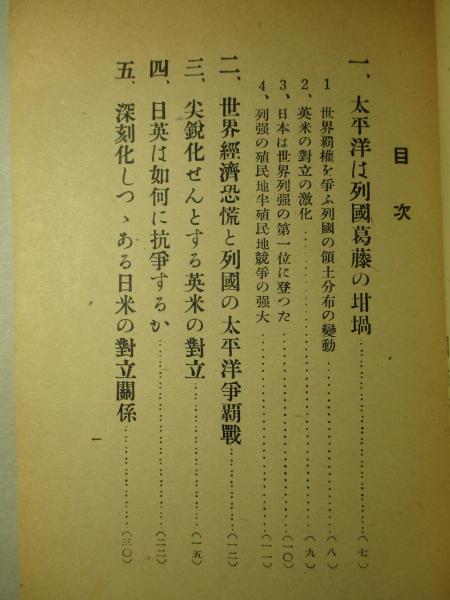 目次
一、太平洋は列國葛藤の坩堝……………(七)
1 世界覇權を爭ふ列國の領土分布の變動……………(八)
2、英米の對立の激化……………(九)
3、日本は世界列强の第一位に登つた……………(一〇)
4、列强の殖民地半殖民地競爭の强大……………(一一)
二、世界經濟恐慌と列國の太平洋爭覇戰……………(一二)
三、尖銳化せんとする英米の對立……………(一五)
四、日英は如何に抗爭するか……………(二二)
五、深刻化しつゝある日米の對立關係……………(三〇)
一